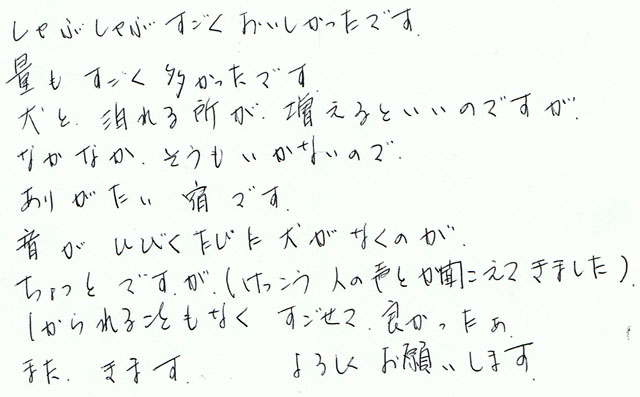 しゃぶしゃぶ すごく おいしかったです.
量も すごく 多かったです
犬と. 泊れる所が. 増えるといいのですが.
なかなか. そうもいかないので.
ありがたい 宿です.
音が ひびくたびに 犬がなくのが.
ちょっと ですが. (けっこう 人の声とか聞こえてきました).
しかられることもなく すごせて. 良かったぁ
また. きます. よろしく お願いします.